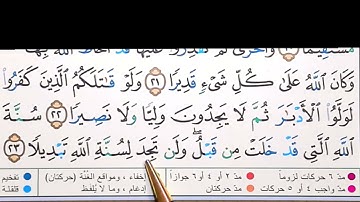 مُّسْتَقِيمًا ۝٢٠ وَأُخْرَىٰ لَمْ تَقْدِرُوا۟ عَلَيْهَا قَدْ أَحَاطَ ٱللَّهُ بِهَا
وَكَانَ ٱللَّهُ عَلَىٰ كُلِّ شَىْءٍ قَدِيرًا ۝٢١ وَلَوْ قَٰتَلَكُمُ ٱلَّذِينَ كَفَرُوا۟
لَوَلَّوُا۟ ٱلْأَدْبَٰرَ ثُمَّ لَا يَجِدُونَ وَلِيًّا وَلَا نَصِيرًا ۝٢٢ سُنَّةَ
ٱللَّهِ ٱلَّتِى قَدْ خَلَتْ مِن قَبْلُ ۖ وَلَن تَجِدَ لِسُنَّةِ ٱللَّهِ تَبْدِيلًا ۝٢٣
مدّ ٦ حركات لزوماً مدّ ٢ أو ٤ أو ٦ جوازاً إخفاء، ومواقع الغُنَّة (حركتان) تفخيم
مدّ واجب ٤ أو ٥ حركات مدّ حركتان إدغام، وما لا يُلفَظ قلقلة